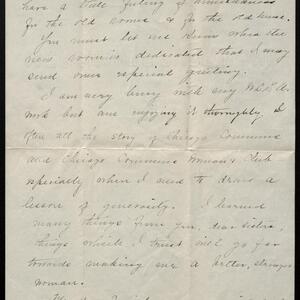 have a little feeling of
for the old rooms & for the old house.
You must let me know when the
new room is dedicated that I may
send some especial greeting.
I am very busy with my
work but am enjoying it thoroughly. I
often tell the story of Chicago Commons
and Chicago Commons Woman's Club
especially when I need to draw a
lesson of generosity. I learned
many things from you, dear sisters,
things which I trust will go far
towards making me a better, stronger
woman.